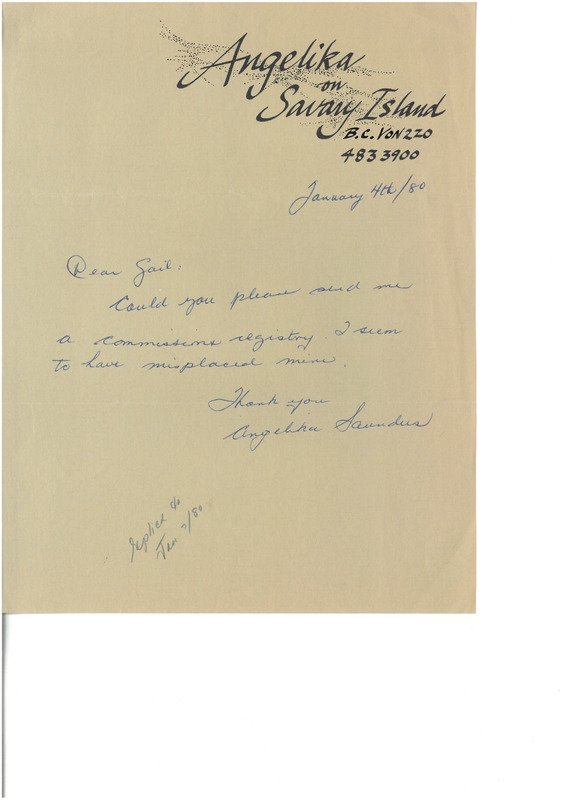 Angelika
on
Savary Island
B.C. VON 2Z0
483 3900
January 4th/80
Dear Gail:
Could you please send me
a commissions registry. I seem
to have misplaced mine.
Thank you
Angelika Saunders
replied to
Jan 7/80